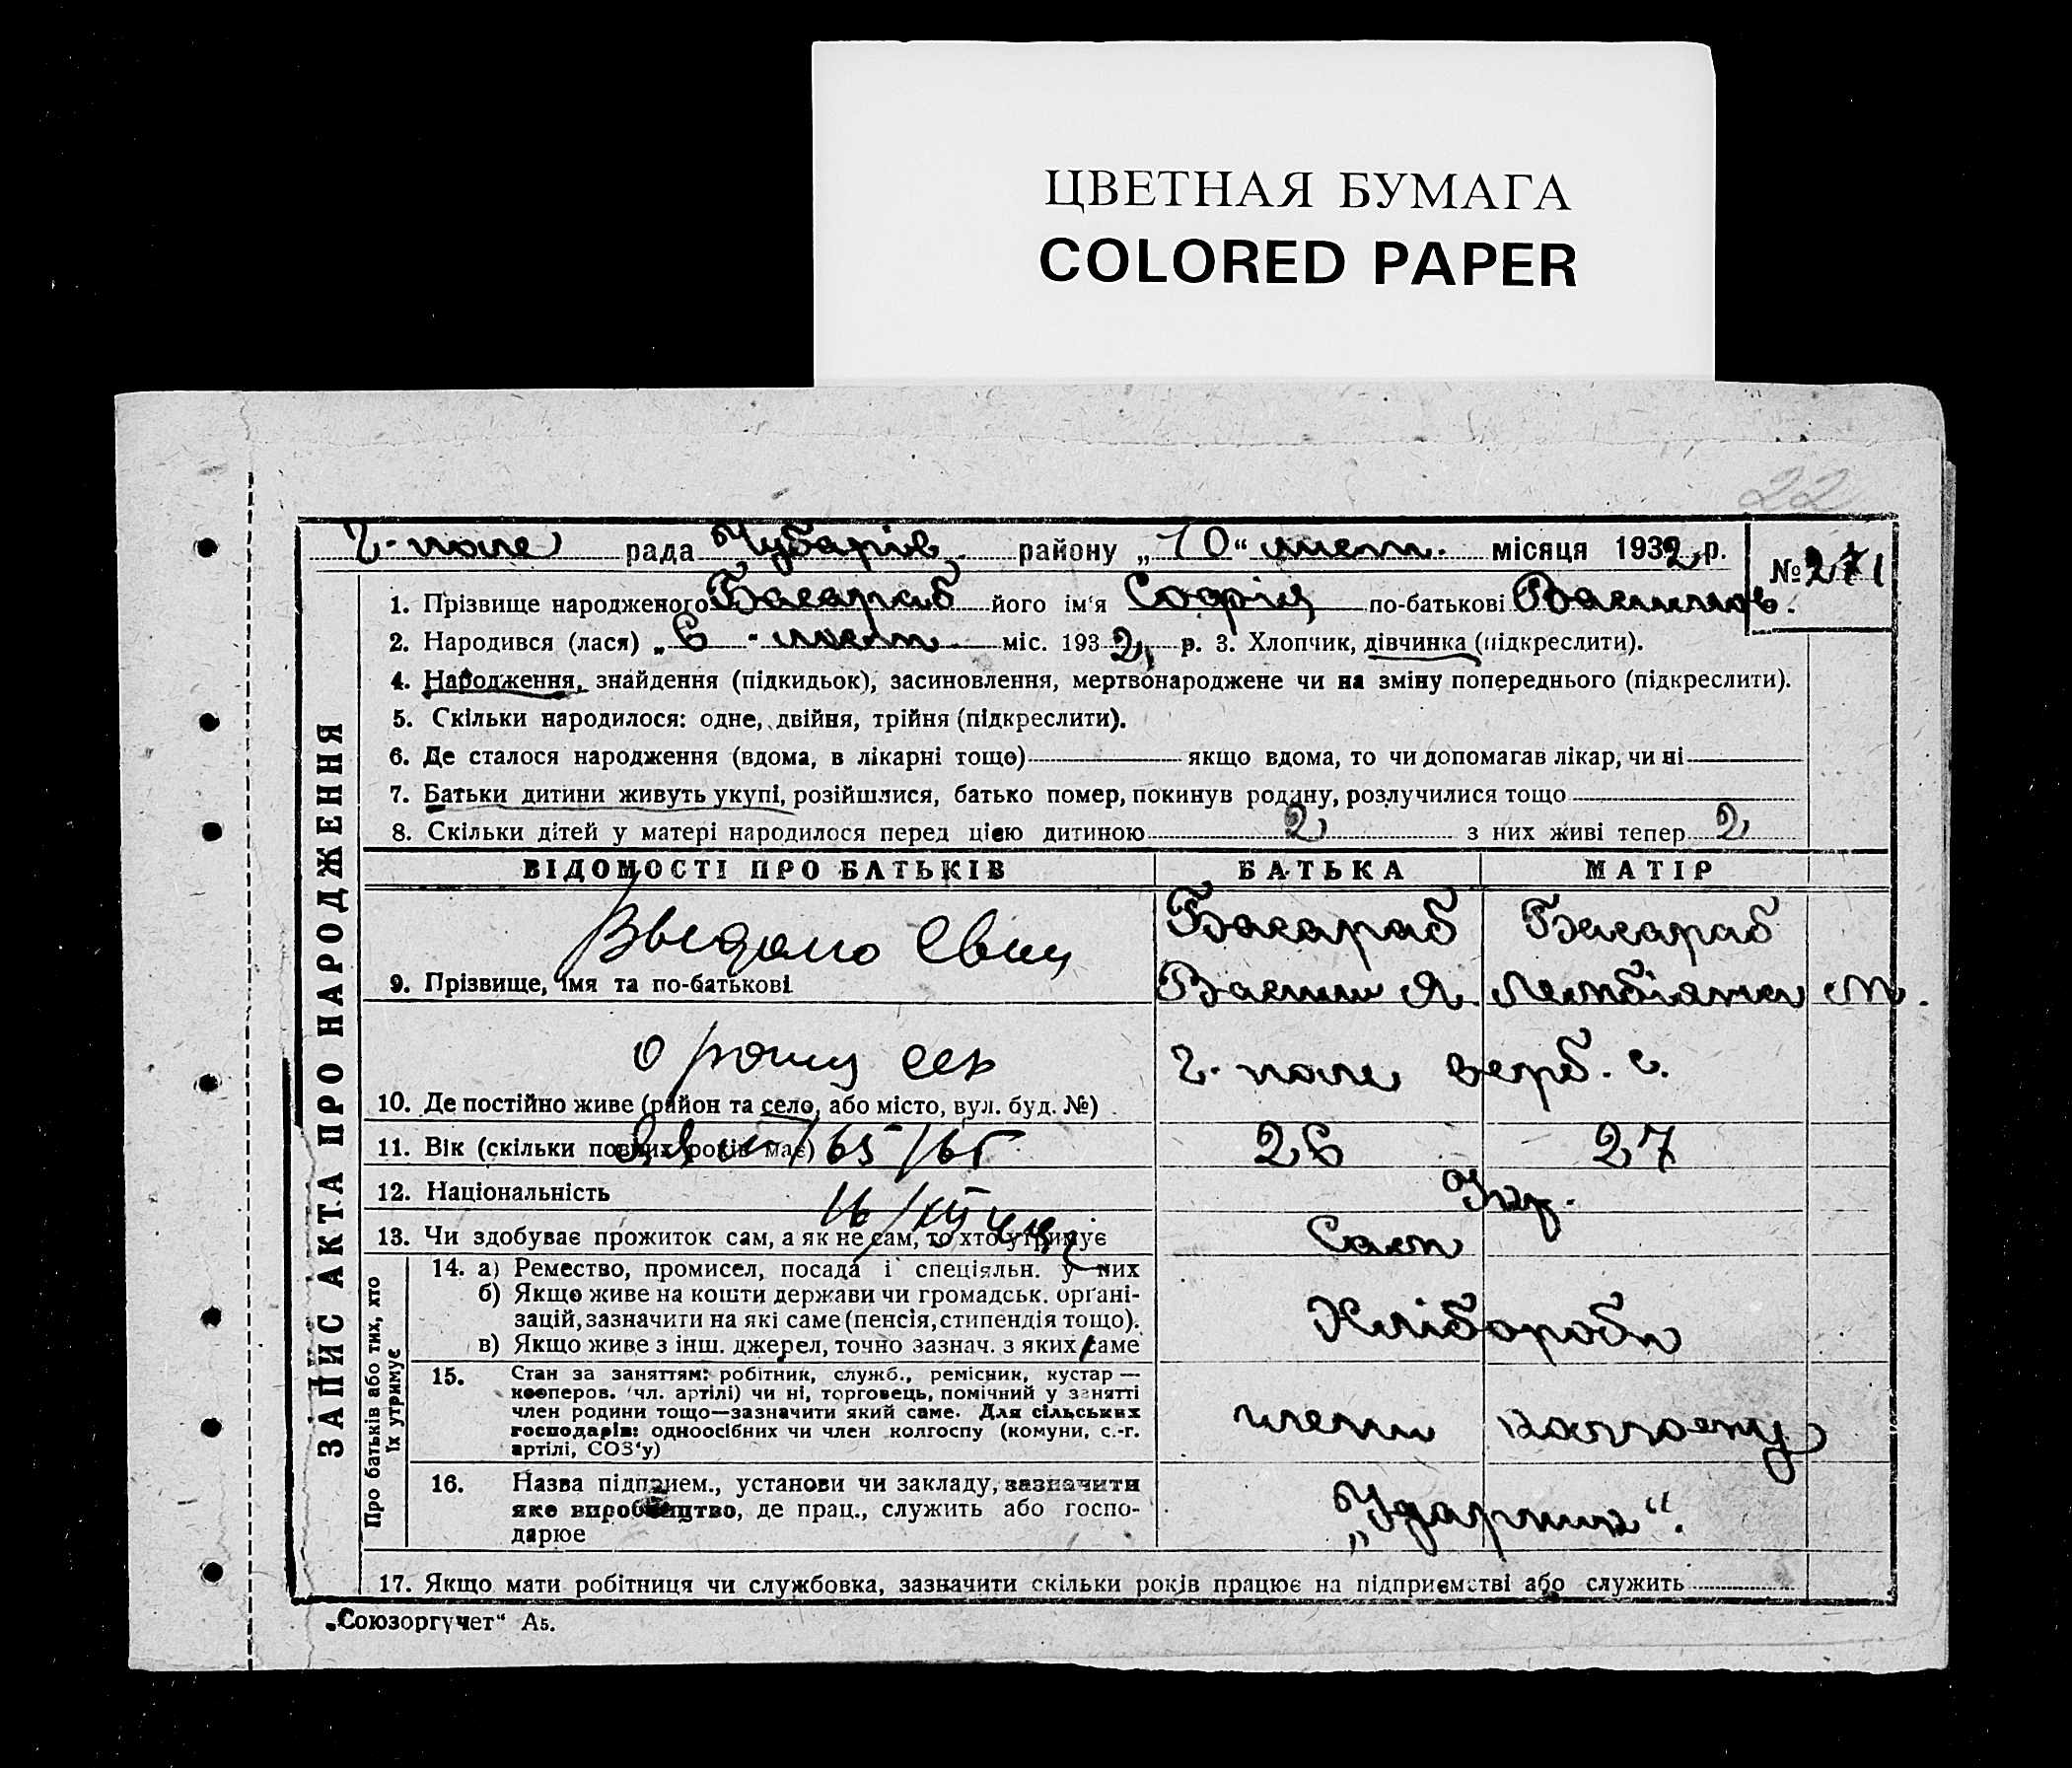 ЦВЕТНАЯ БУМАГА
COLORED PAPER
22
Г. поле рада Чубарів. району „10“ лист. місяця 1932 р. № 271
ЗАПИС АКТА ПРО НАРОДЖЕННЯ
1. Прізвище народженого Басараб його ім'я Софія по-батькові Василів.
2. Народився (лася) „6 - лист. міс. 1932, р. 3. Хлопчик, дівчинка (підкреслити).
4. Народження, знайдення (підкидьок), засиновлення, мертвонароджене чи на зміну попереднього (підкреслити).
5. Скільки народилося: одне, двійня, трійня (підкреслити).
6. Де сталося народження (вдома, в лікарні тощо) якщо вдома, то чи допомагав лікар, чи ні
7. Батьки дитини живуть укупі, розійшлися, батько помер, покинув родину, розлучилися тощо
8. Скільки дітей у матері народилося перед цією дитиною 2 з них живі тепер 2
ВІДОМОСТІ ПРО БАТЬКІВ БАТЬКА МАТІР
Басараб Басараб
9. Прізвище, імя та по-батькові Василь Я. М.
Г. поле верб. с.
10. Де постійно живе (район та село, або місто, вул. буд. №)
11. Вік (скільки повних років має) 26 27
12. Національність Укр.
13. Чи здобуває прожиток сам, а як не сам, то хто утримує Сам
Про батьків або тих, хто їх утримує
14. а) Ремество, промисел, посада і спеціяльн. у них
б) Якщо живе на кошти держави чи громадськ. органі-
зацій, зазначити на які саме (пенсія, стипендія тощо).
в) Якщо живе з інш. джерел, точно зазнач. з яких саме
Хлібороби
15. Стан за заняттям: робітник, служб., ремісник, кустар—
кооперов. (чл. артілі) чи ні, торговець, помічний у занятті
член родини тощо—зазначити який саме. Для сільських
господарів: одноосібних чи член колгоспу (комуни, с.-г.
артілі, СОЗ'у)
члени колгоспу
16. Назва підприєм., установи чи закладу, зазначити
яке виробництво, де прац., служить або госпо-
дарює
„Ударник“.
17. Якщо мати робітниця чи службовка, зазначити скільки років працює на підприємстві або служить
„Союзоргучет“ А5.